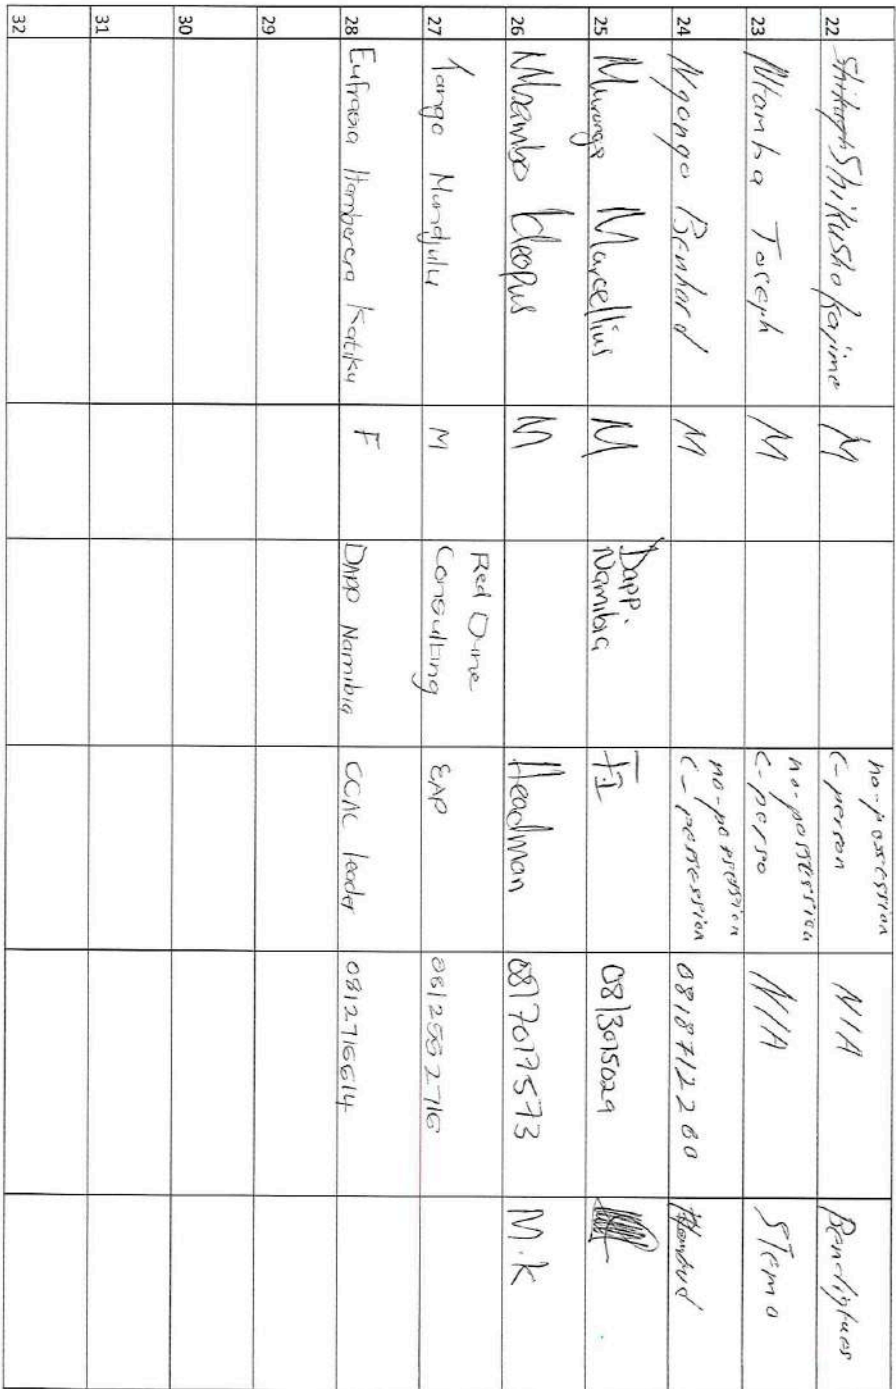 22 Shikusho Kajimo M no-possession C-person N/A
23 Ntamba Joseph M no-possession C-perso N/A Stemo
24 Ngongo Benhard M no-possession C-possession 0818712200
25 Murongo Marcellius M Dapp. Namibia F.I 0813015029
26 Mbambo Kleopus M Headman 0817017573 M.K
27 Tango Mundjulu M Red Dune Consulting EAP
28 Eufrasia Hamberera Katiku F DAPP Namibia CCAC leader 0812716614
29
30
31
32